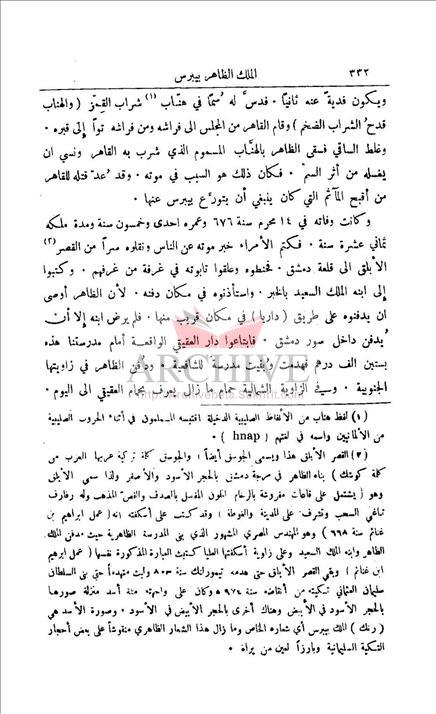 ٣٣٢ الملك الظاهر بيبرس
ويكون فدية عنه ثانياً. فدس له سماً في هناب (١) شراب القمز (والهناب
قدح الشراب الضخم) وقام القاهر من المجلس الى فراشه ومن فراشه تواً إلى قبره.
وغلط الساقي فسقى الظاهر بالهناب المسموم الذي شرب به القاهر ونسي ان
يغسله من أثر السم. فكان ذلك هو السبب في موته. وقد عد قتله للقاهر
من أقبح المآثم التي كان ينبغي أن يتورع بيبرس عنها.
وكانت وفاته في ١٤ محرم سنة ٦٧٦ وعمره احدى وخمسون سنة ومدة ملكه
ثماني عشرة سنة. فكتم الأمراء خبر موته عن الناس ونقلوه سراً من القصر (٢)
الأبلق الى قلعة دمشق. فحنطوه وعلقوا تابوته في غرفة من غرفهم. وكتبوا
إلى ابنه الملك السعيد بالخبر. واستأذنوه في مكان دفنه. لأن الظاهر أوصى
ان يدفنوه على طريق (داريا) في مكان قريب منها. فلم يرض ابنه إلا أن
يدفن داخل سور دمشق. فابتاعوا دار العقيقي الواقعة أمام مدرستنا هذه
بستين الف درهم فهدمت وبنيت مدرسة للشافعية. ودفن الظاهر في زاويتها
الجنوبية. وفي الزاوية الشمالية حمام ما زال يعرف بحمام العقيقي الى اليوم.
ARCHIVE
(١) لفظ هناب من الألفاظ الصليبية الدخيلة اقتبسه المسلمون في أثناء الحروب الصليبية
من الألمانيين واسمه في لغتهم (hnap).
(٢) القصر الأبلق هذا ويسمى الجوسق أيضاً (والجوسق كلمة تركية عربها العرب من
كلمة كوشك) بناه الظاهر في مرجة دمشق بالحجر الأسود والأصفر ولذا سمي الأبلق
وهو (يشتمل على قاعات مفروشة بالرخام الملون المفصل بالصدف والفص المذهب وله رفارف
تناغي السحب وتشرف على المدينة والغوطة) وقد كتب على أسكفته إنه (عمل ابراهيم بن
غنائم سنة ٦٦٨) وهو المهندس المصري المشهور الذي بنى المدرسة الظاهرية حيث مدفن الملك
الظاهر وابنه الملك السعيد وعلى زاوية أسكفتها العليا كتبت العبارة المذكورة نفسها (عمل ابرهيم
ابن غنائم) وبقي القصر الأبلق حتى هدمه تيمورلنك سنة ٨٠٣ ولبث متهدماً حتى بنى السلطان
سليمان العثماني تكيته من أنقاضه سنة ٩٧٤ وكان على واجهته منة أسد منزلة صورها
بالحجر الأسود في الأبيض وهناك أخرى بالحجر الأبيض في الأسود. وصورة الأسد هي
(رنك) الملك بيبرس أي شعاره الخاص وما زال هذا الشعار الظاهري منقوشاً على بعض أحجار
التكية السليمانية وبارزاً لعين من يراه.